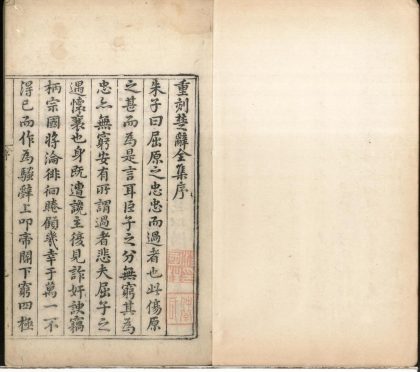 重刻楚辭全集序
朱子曰屈原之忠忠而過者也此傷原
之甚而為是言耳臣子之分無窮其為
忠亦無窮安有所謂過者悲夫屈子之
遇懷襄也身既遭讒主復見詐奸諛竊
柄宗國將淪徘徊睠顧冀幸于萬一不
得已而作為騷辭上叩帝閽下窮四極